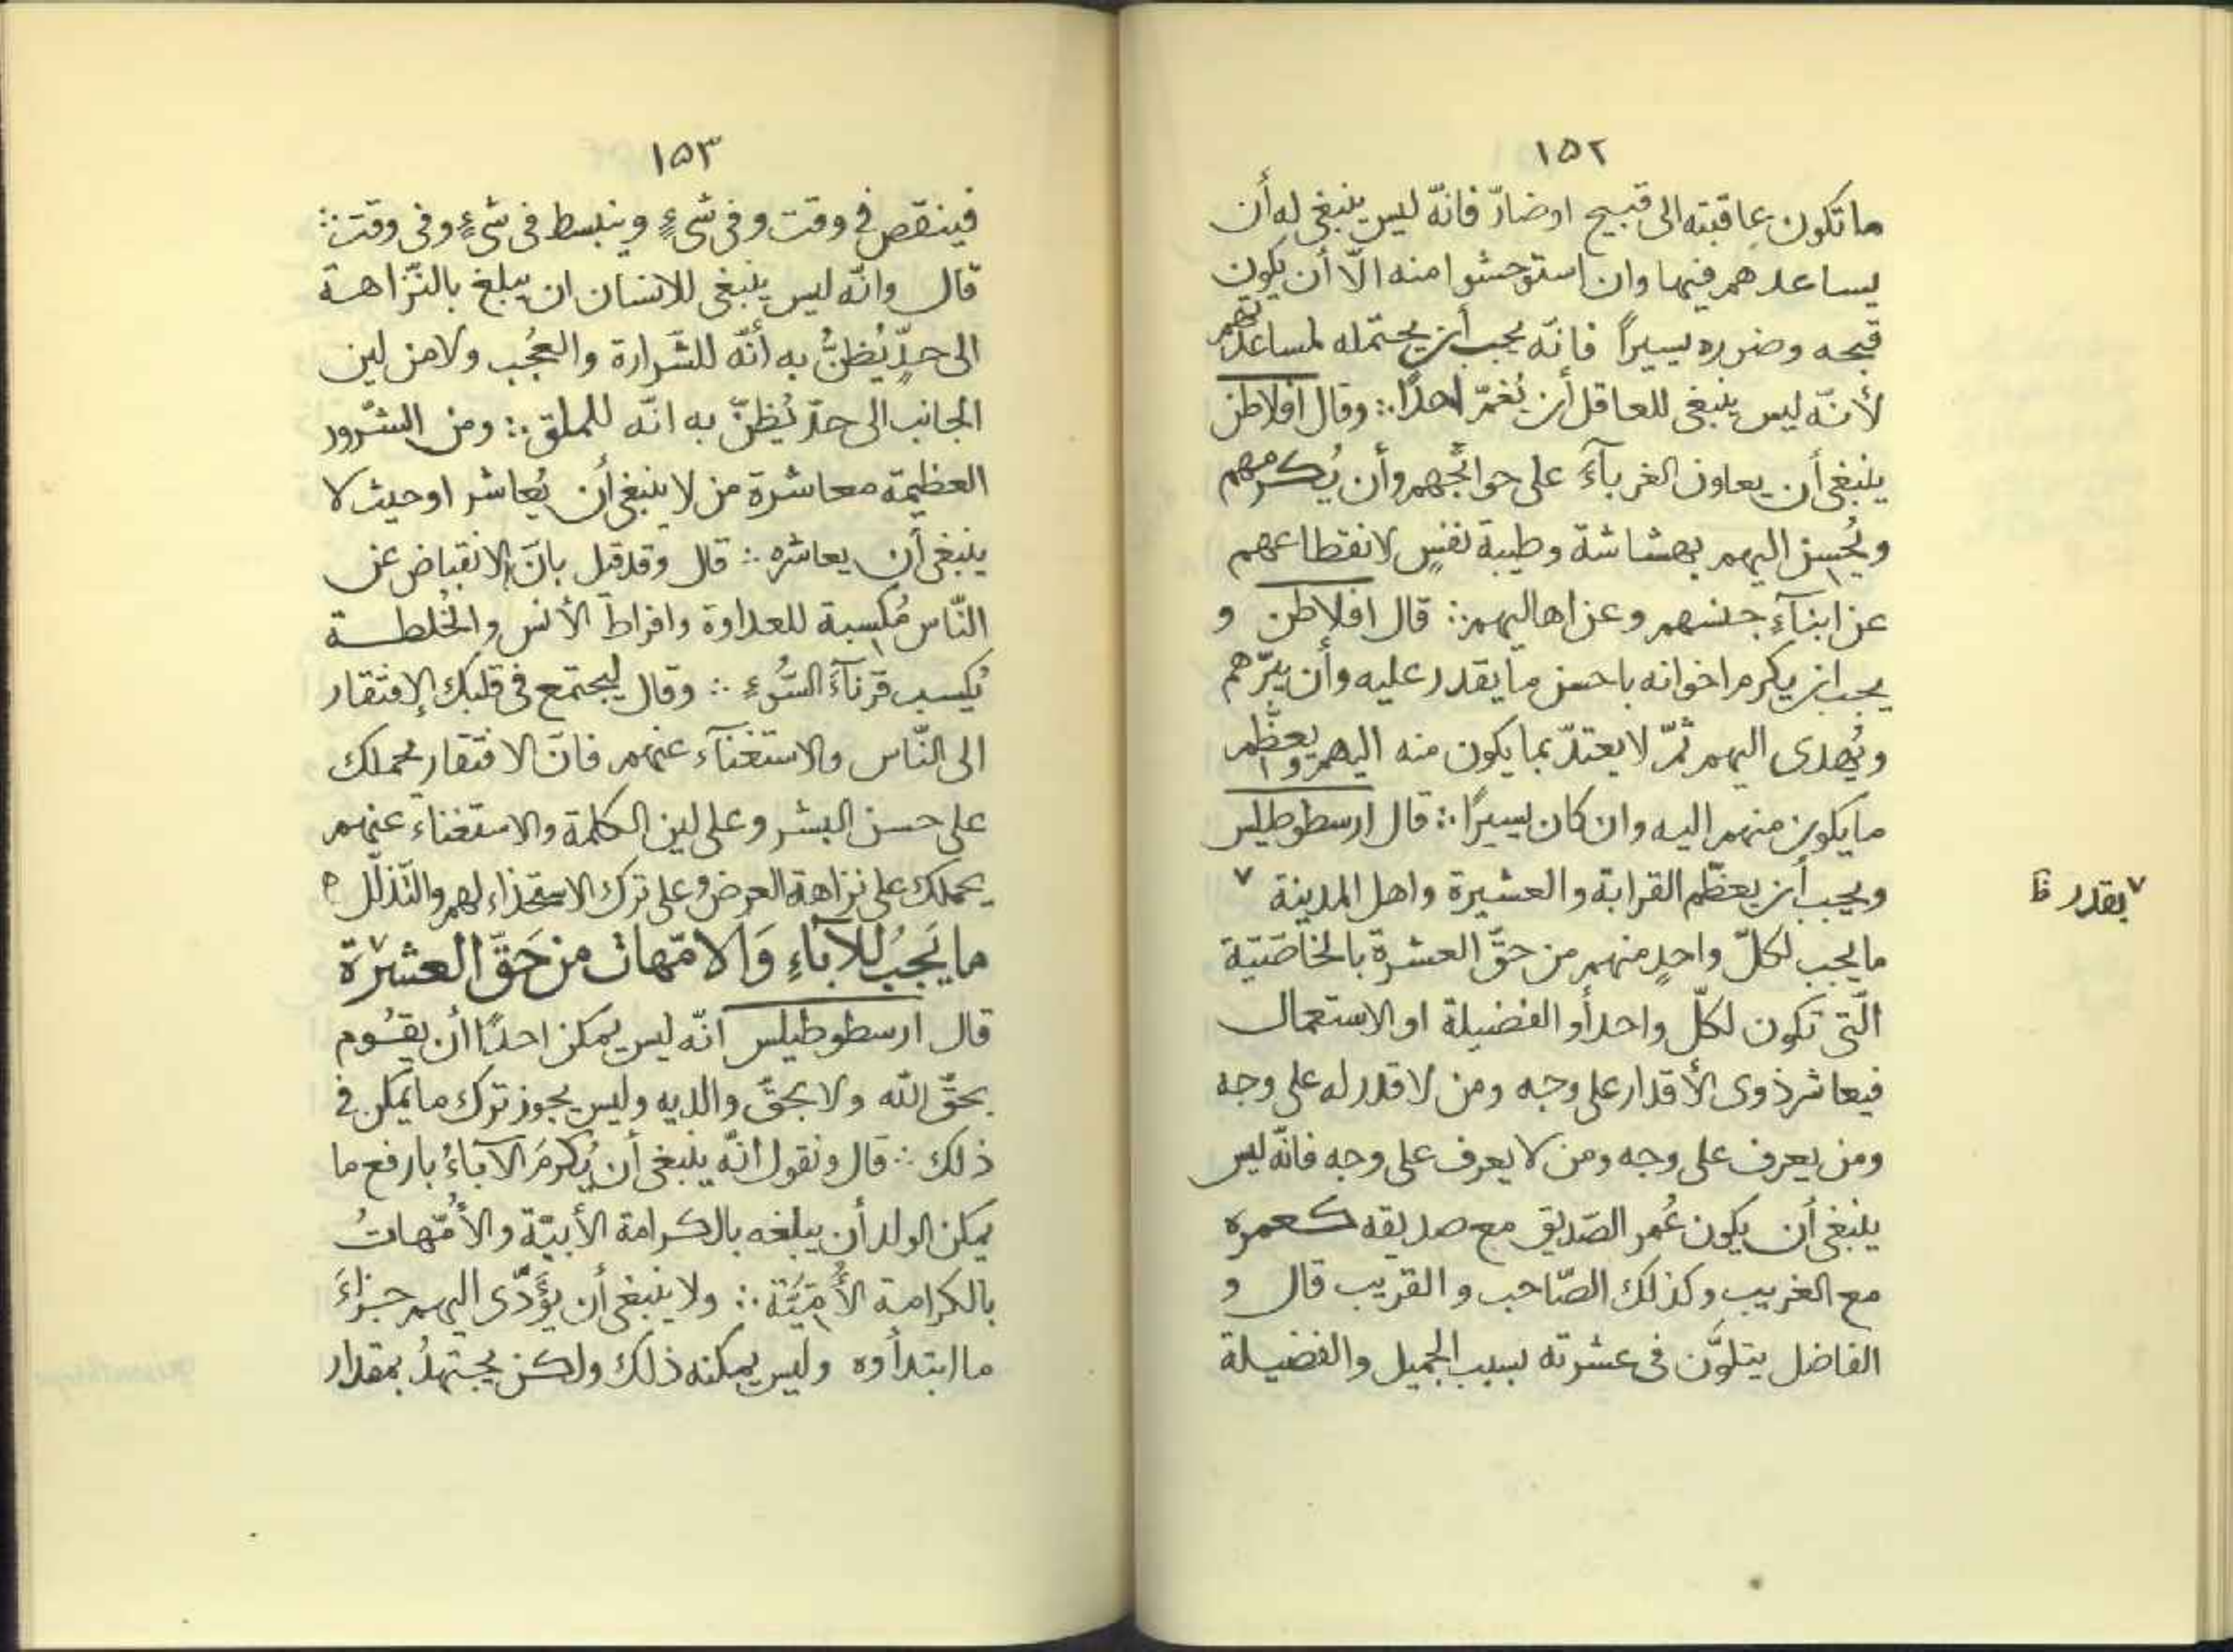 ١٥٢
ما تكون عاقبته الى قبيح او ضارّ فانّه ليس ينبغى له أن
يساعدهم فيها وان استوحشوا منه الّا أن يكون
قبحه وضرره يسيراً فانّه يجب أن يحتمله لمساعدتهم
لأنّه ليس ينبغى للعاقل أن يُغمّ احدًا ∴ وقال افلاطن
ينبغى أن يعاون الغرباءَ على حوائجهم وأن يُكرمهم
ويُحسن اليهم بهشاشة وطيبة نفسٍ لانقطاعهم
عن ابناءِ جنسهم وعن اهاليهم ∴ قال افلاطن و
يجب ان يكرم اخوانه باحسن ما يقدر عليه وأن يبرّهم
ويُهدى اليهم ثمّ لا يعتدّ بما يكون منه اليهم ويعظّم
ما يكون منهم اليه وان كان يسيرًا ∴ قال ارسطوطيلس
ويجب أن يعظّم القرابة والعشيرة واهل المدينة ٧
٧ بقدر ظ
ما يجب لكلّ واحدٍ منهم من حقّ العشرة بالخاصّيّة
الّتى تكون لكلّ واحد أو الفضيلة او الاستعمال
فيعاشر ذوى الأقدار على وجه ومن لا قدر له على وجه
ومن يعرف على وجه ومن لا يعرف على وجه فانّه ليس
ينبغى أن يكون عُمر الصّديق مع صديقه كعمره
مع الغريب وكذلك الصّاحب والقريب قال و
الفاضل يتلوَّن فى عشرته بسبب الجميل والفضيلة
١٥٣
فينقص فى وقت وفى شىءٍ وينبسط فى شىءٍ وفى وقت ∴
قال وانّه ليس ينبغى للانسان ان يبلغ بالنّزاهة
الى حدٍّ يُظنُّ به أنّه للشّرارة والعُجب ولا من لين
الجانب الى حدّ يُظنّ به انّه للملق ∴ ومن الشّرور
العظيمة معاشرة من لا ينبغى أن يُعاشر او حيث لا
ينبغى أن يعاشره ∴ قال وقد قيل بانّ الانقباض عن
النّاس مُكسبة للعداوة وافراط الأنس والخُلطة
يُكسب قرناءَ السُّوءِ ∴ وقال ليجتمع فى قلبك الإفتقار
الى النّاس والاستغناء عنهم فانّ الافتقار يحملك
على حسن البشر وعلى لين الكلمة والاستغناء عنهم
يحملك على نزاهة العرض وعلى ترك الاستخذاء لهم والتّذلّل ه
ما يَجبُ للآباءِ وَالامّهات من حَقّ العشرة
قال ارسطوطيلس انّه ليس يمكن احدًا أن يقُوم
بحقّ الله ولا بحقّ والديه وليس يجوز ترك ما يمكن فى
ذلك ∴ قال ونقول انّه ينبغى أن يُكرمُ الآباءُ بارفع ما
يمكن الولد أن يبلغه بالكرامة الأبيّة والأُمّهاتُ
بالكرامة الأُمّيَّة ∴ ولا ينبغى أن يؤَدّى اليهم جزاءَ
ما ابتدأوه وليس يمكنه ذلك ولكن يجتهدُ بمقدار